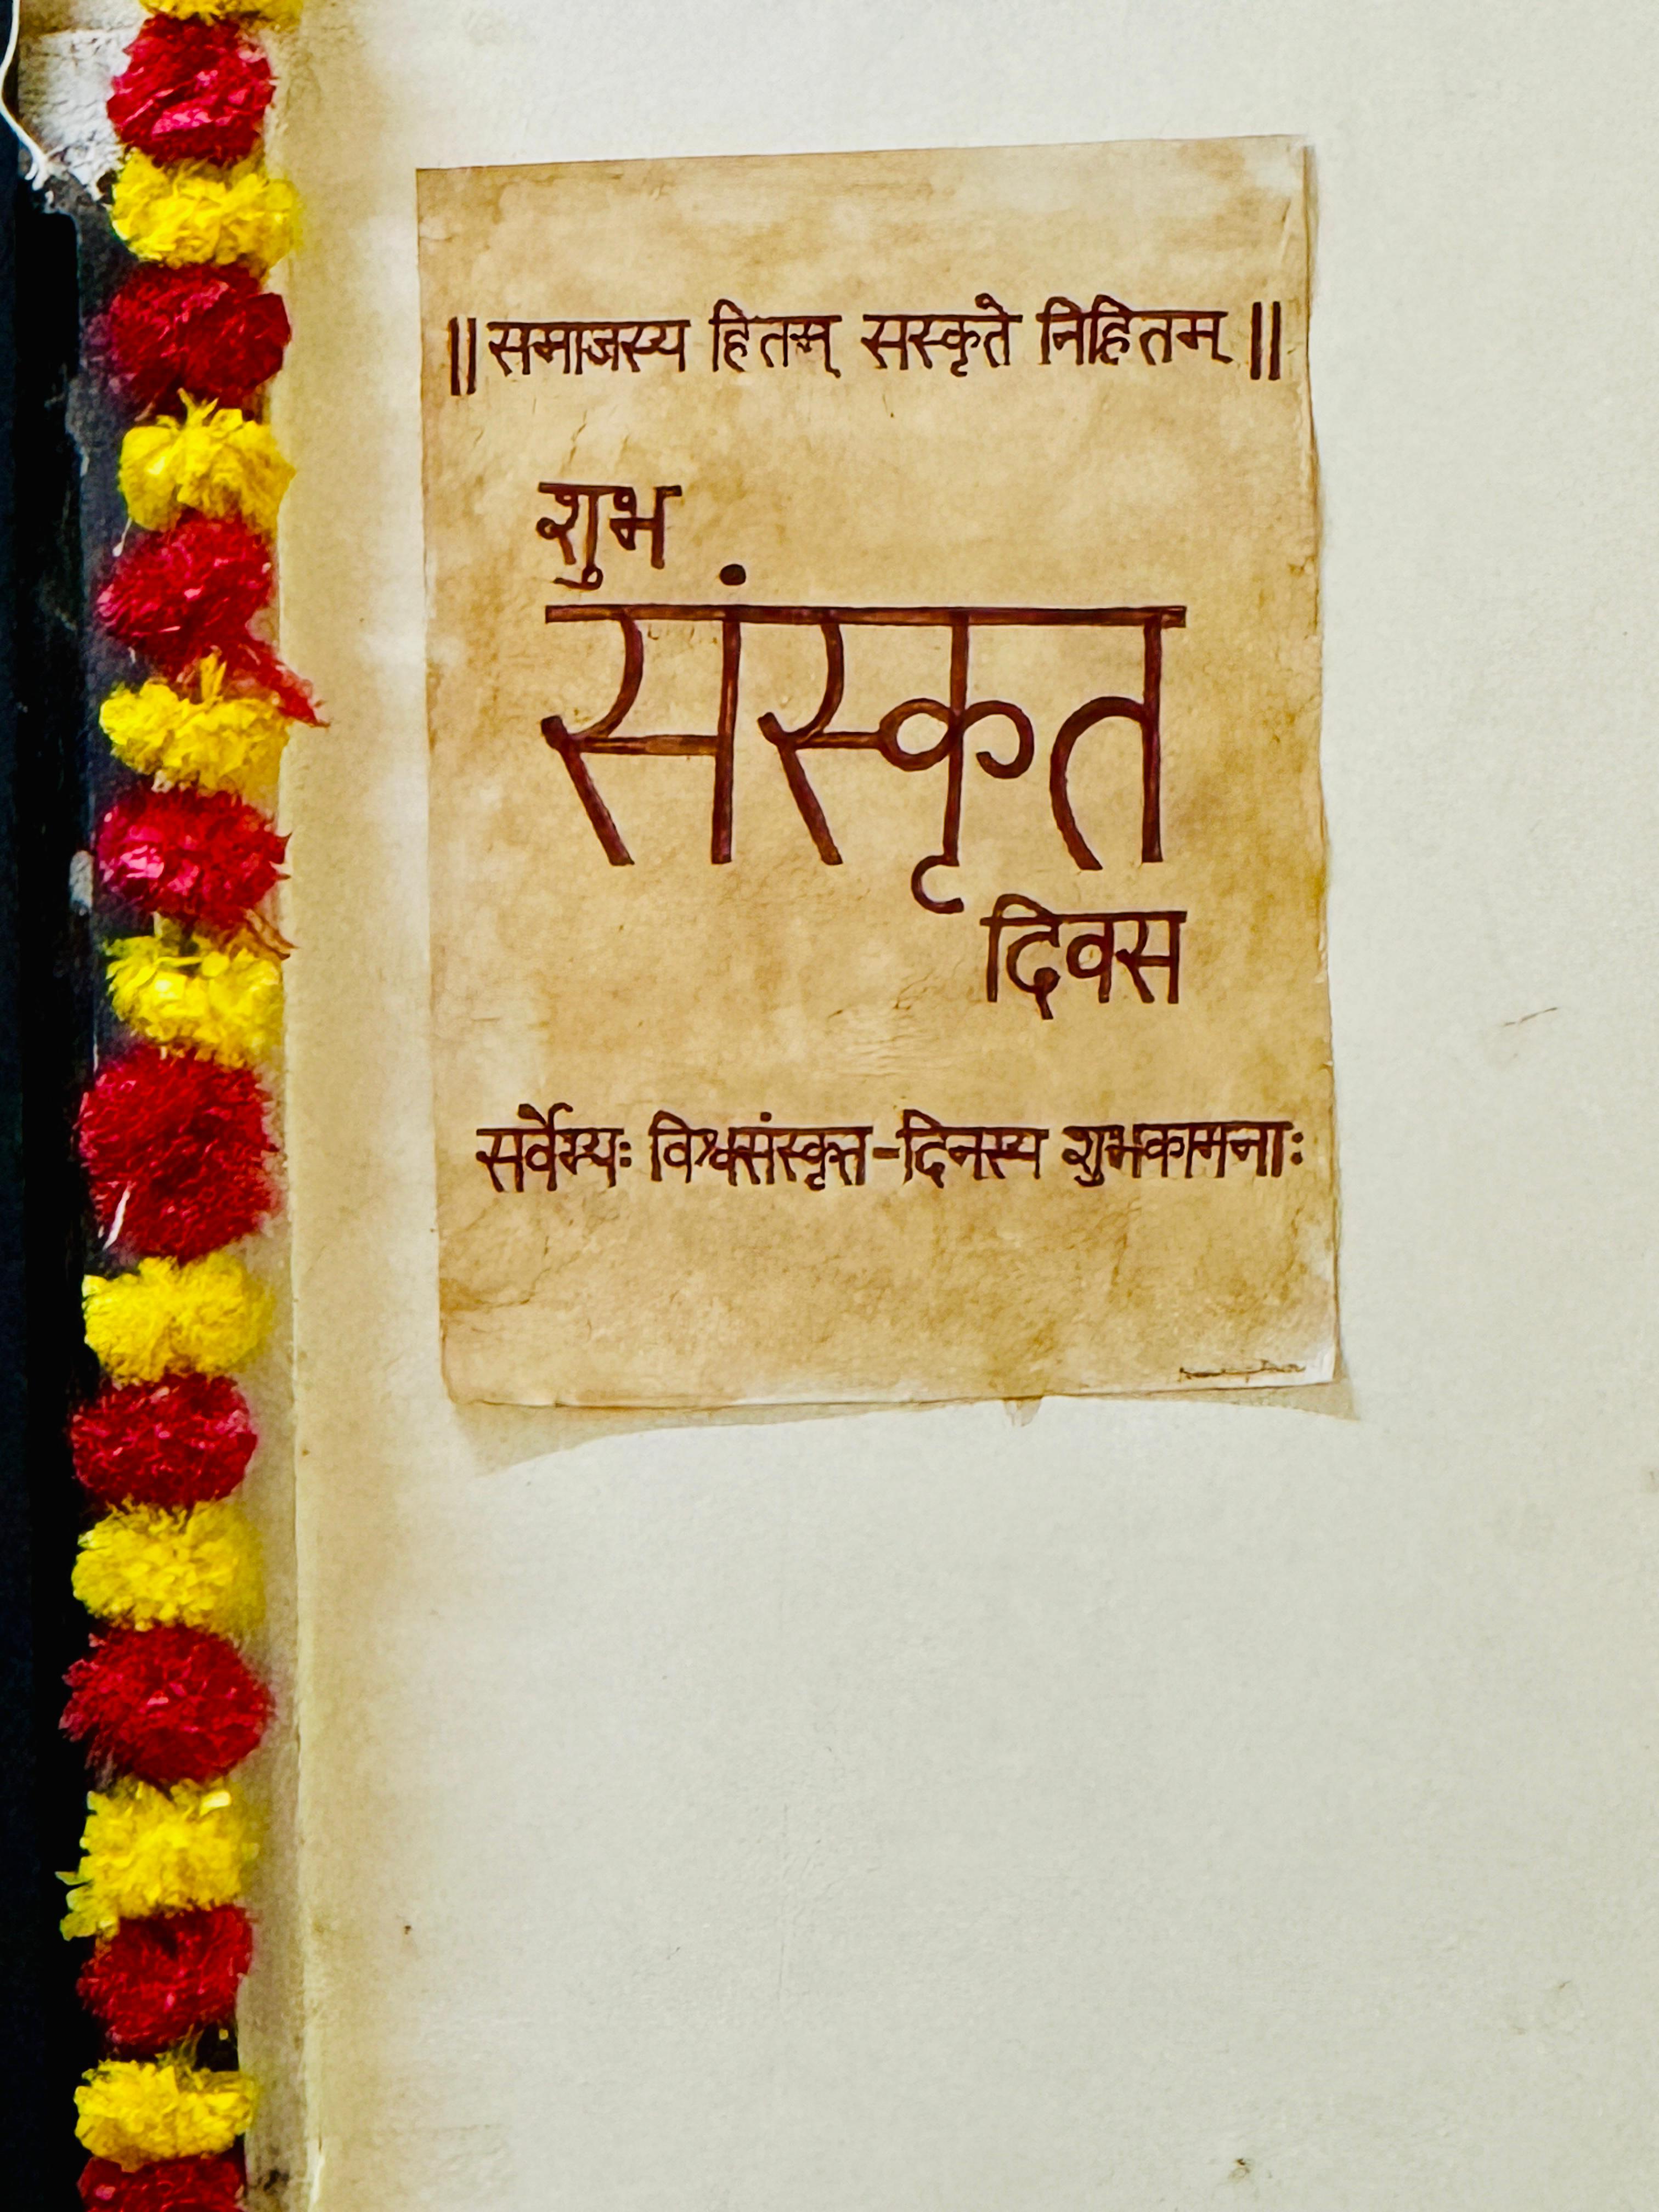 ॥ समाजस्य हितम् सस्कृते निहितम् ॥
शुभ
संस्कृत
दिवस
सर्वेभ्यः विश्वसंस्कृत-दिनस्य शुभकामनाः